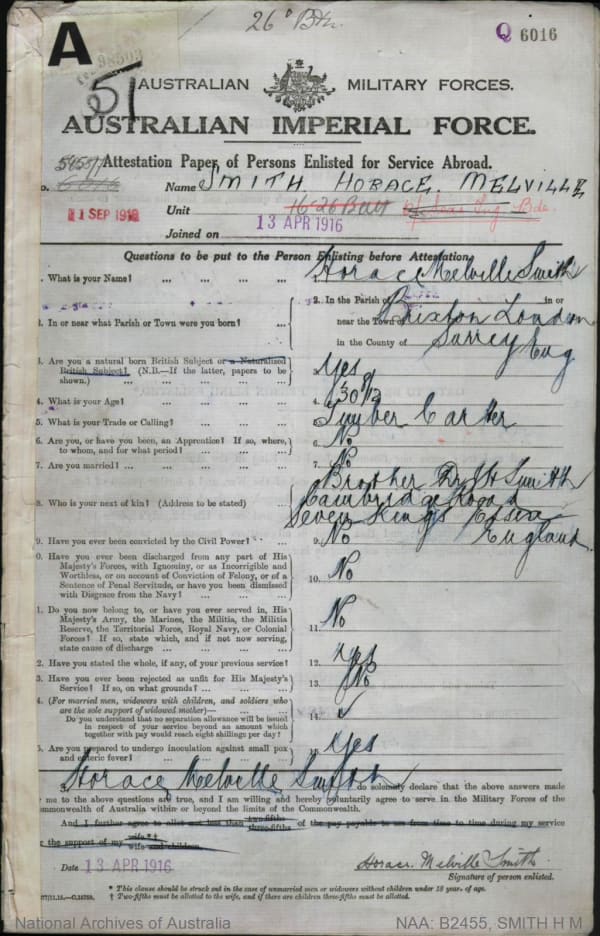 26º Btn
A
Q 6016
98503
51
AUSTRALIAN MILITARY FORCES.
AUSTRALIAN IMPERIAL FORCE.
Attestation Paper of Persons Enlisted for Service Abroad.
o. 6016 Name SMITH. HORACE. MELVILLE
Unit 16-26 Batt
13 APR 1916
Joined on
Questions to be put to the Person Enlisting before Attestation.
. What is your Name? ... Horace Melville Smith
2. In or near what Parish or Town were you born? ... 2. In the Parish of in or
near the Town of Brixton London
in the County of Surrey Eng
3. Are you a natural born British Subject or a Naturalized
British Subject? (N.B.—If the latter, papers to be
shown.) 3. Yes
4. What is your Age? 4. 30 9/12
5. What is your Trade or Calling? 5. Timber Carter
6. Are you, or have you been, an Apprentice? If so, where,
to whom, and for what period? 6. No
7. Are you married? 7. No
8. Who is your next of kin? (Address to be stated) Brother Smith
Cambridge Road
Seven Kings Essex
England
9. Have you ever been convicted by the Civil Power? No
0. Have you ever been discharged from any part of His
Majesty's Forces, with Ignominy, or as Incorrigible and
Worthless, or on account of Conviction of Felony, or of a
Sentence of Penal Servitude, or have you been dismissed
with Disgrace from the Navy? 10. No
1. Do you now belong to, or have you ever served in, His
Majesty's Army, the Marines, the Militia, the Militia
Reserve, the Territorial Force, Royal Navy, or Colonial
Forces? If so, state which, and if not now serving,
state cause of discharge 11. No
2. Have you stated the whole, if any, of your previous service? 12. Yes
3. Have you ever been rejected as unfit for His Majesty's
Service? If so, on what grounds? 13. No
4. (For married men, widowers with children, and soldiers who
are the sole support of widowed mother)—
Do you understand that no separation allowance will be issued
in respect of your service beyond an amount which
together with pay would reach eight shillings per day? 14. ✓
5. Are you prepared to undergo inoculation against small pox
and enteric fever? 15. Yes
Horace Melville Smith do solemnly declare that the above answers made
me to the above questions are true, and I am willing and hereby voluntarily agree to serve in the Military Forces of the
ommonwealth of Australia within or beyond the limits of the Commonwealth.
And I further agree to allot not less than two-fifths three-fifths of the pay payable to me from time to time during my service
the support of my wife *† wife and children.
Date 13 APR 1916 Horace Melville Smith
Signature of person enlisted.
* This clause should be struck out in the case of unmarried men or widowers without children under 18 years of age.
† Two-fifths must be allotted to the wife, and if there are children three-fifths must be allotted.
National Archives of Australia NAA: B2455, SMITH H M